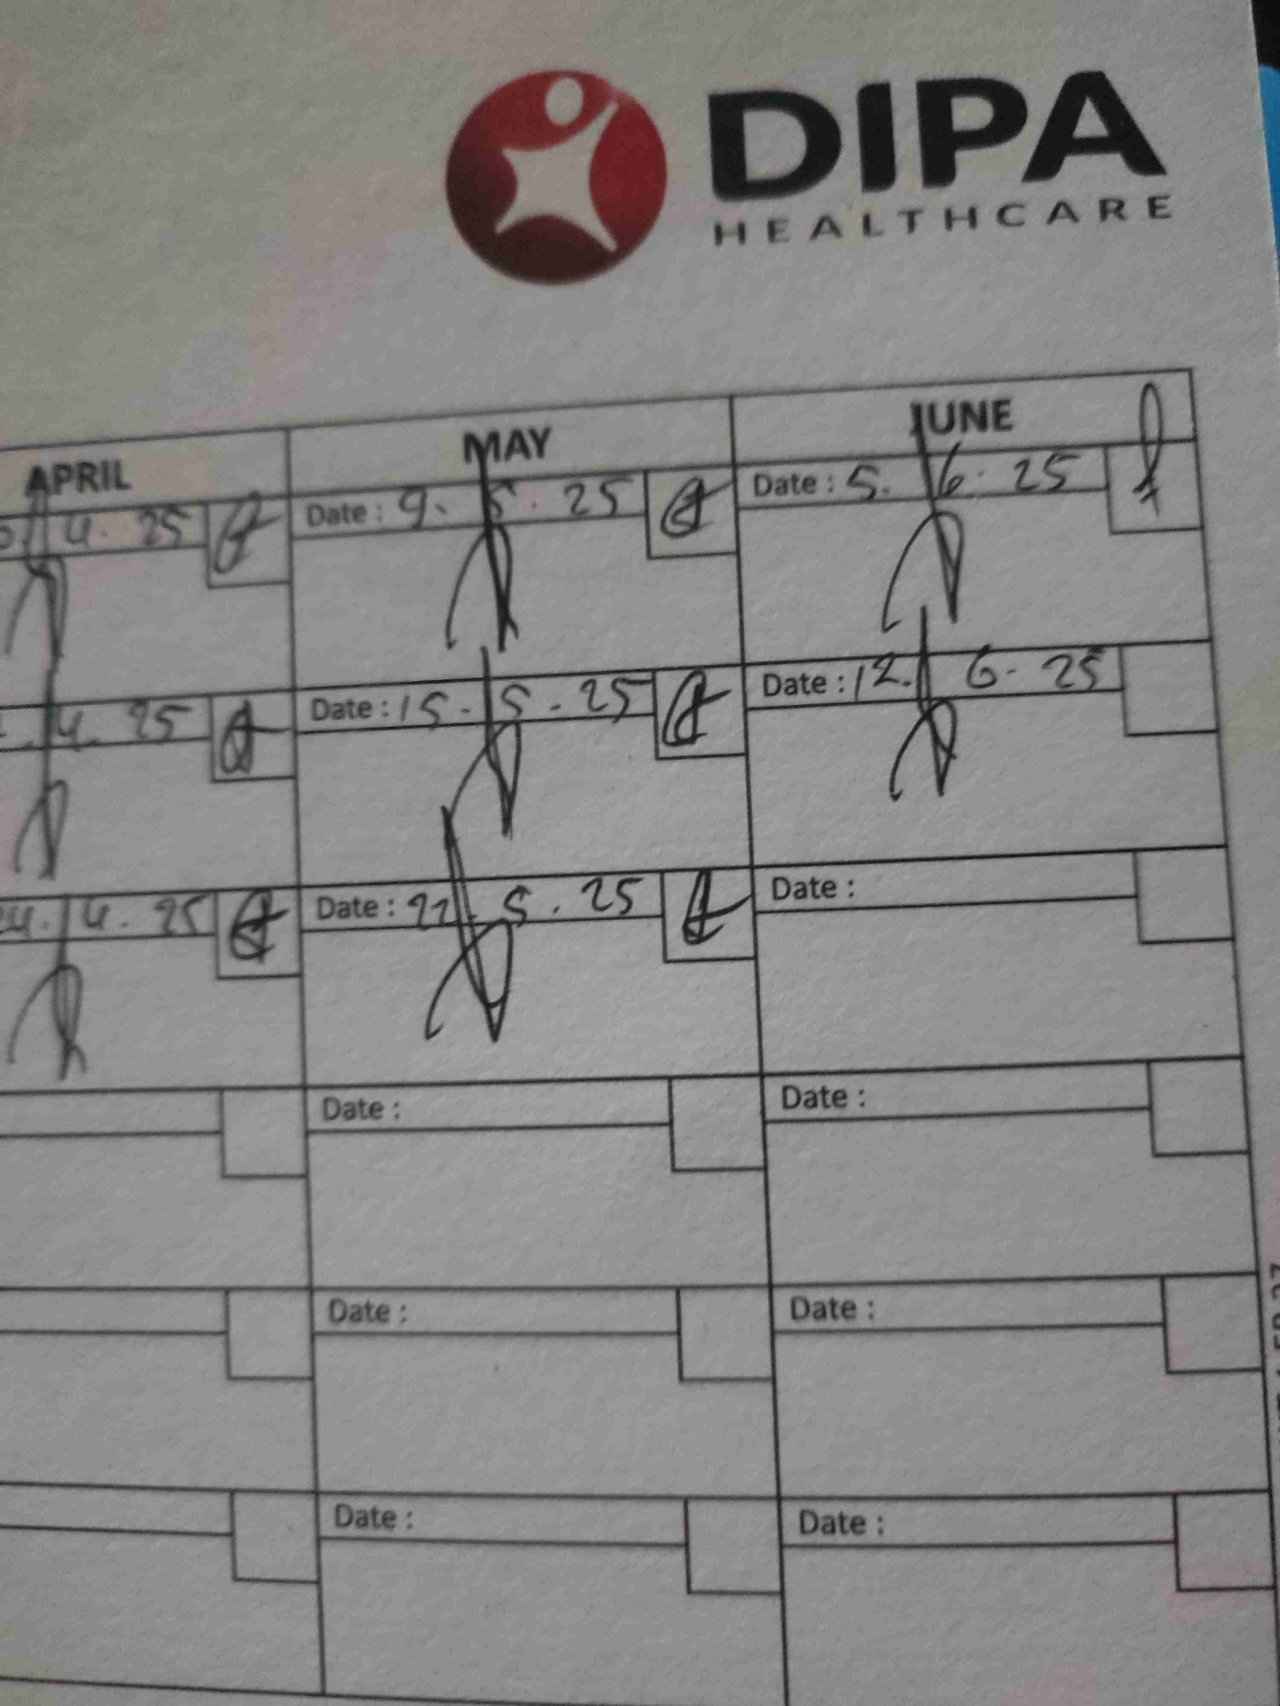 DIPA
HEALTHCARE
APRIL MAY JUNE
4. 25 Date : 9. 5. 25 Date : 5. 6. 25
4. 25 Date : 15. 5. 25 Date : 12. 6. 25
24. 4. 25 Date : 5. 25 Date :
Date : Date :
Date : Date :
Date : Date :